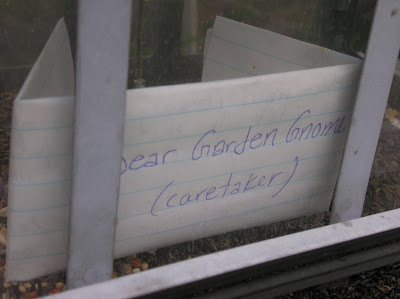 Dear Garden Gnome
(caretaker)